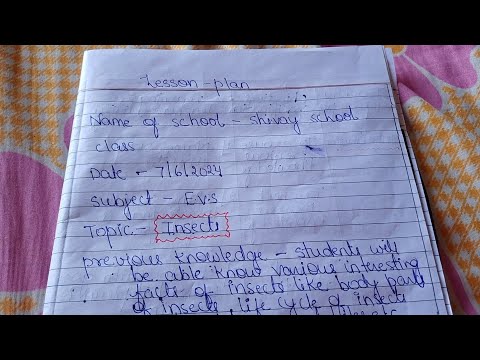 Lesson-plan
Name of school - shivay school
class
Date - 7/6/2024
Subject - Evs
Topic - Insects
previous knowledge - students will
be able know various interesting
facts of insects like body parts
of insects, life cycle of insects